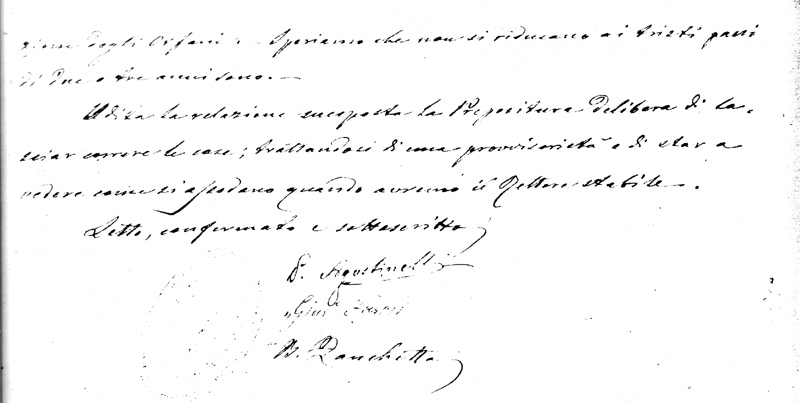 zione degli Orfani. Speriamo che non si riducano ai tristi passi
di due o tre anni sono. —
Udita la relazione suesposta la Prepositura delibera di la-
sciar correre le cose; trattandosi di una provvisorietà e di star a
vedere come si assodano quando avremo il Rettore stabile.
Letto, confermato e sottoscritto
D. Agostinelli
B. Zanchetta